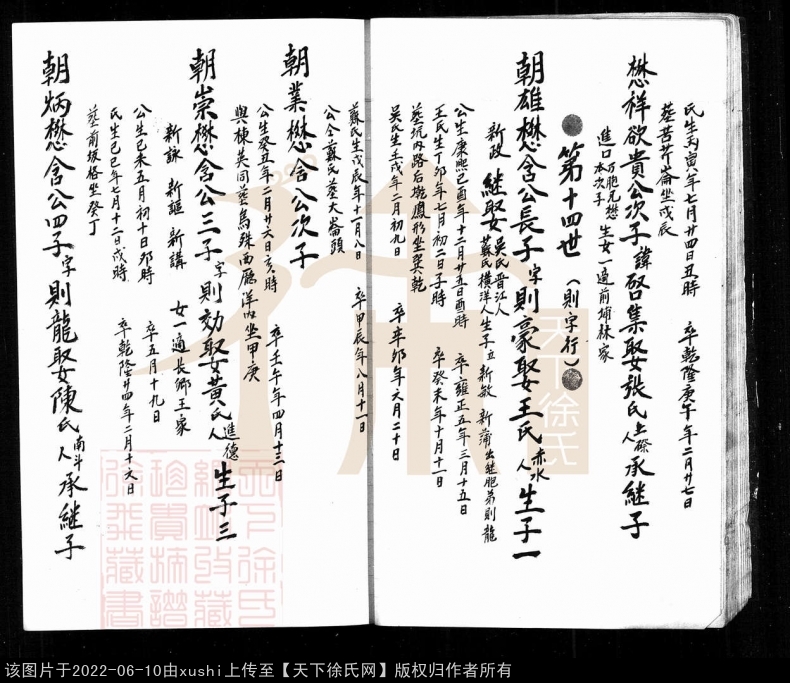 氏生丙寅年七月廿四日丑時　卒乾隆庚午年二月廿七日
葬苦芹崙坐戌辰
懋祥欲貴公次子諱啓集娶張氏上
人承継子
進口本次子
生女一適前埔林家
第十四世（則字行）
朝雄懋含公長子字則豪娶王氏赤水
人生子一
新政　継娶吳氏晋江人
蘇氏橫洋人生子立新敏　新蒲出継胞弟則龍
公生康熙己酉年十二月廿五日酉時　卒雍正五年三月十五日
王氏生丁卯年七月初二日子時　卒癸未年十月十一日
葬坑内路右坮鳳形坐巽乾
吳氏生壬戌年二月初九日　卒辛卯年六月二十日
蘇氏生戊辰年十一月八日　卒甲辰年八月十一日
公仝蘇氏葬大崙頭
朝業懋含公次子
公生癸丑年二月廿六日亥時　卒壬午年四月十三日
與棟英同葬烏珠西廳洋内坐甲庚
朝崇懋含公三子字則効娶黃氏進德
人生子三
新詠　新謳　新講　女一適長鄉王家
公生己未五月初十日卯時　卒五月十九日
氏生己巳年七月十二日戌時　卒乾隆廿四年二月十六日
葬前坂格坐癸丁
朝炳懋含公四子字則龍娶陳氏南斗
人承継子
天下徐氏
该图片于2022-06-10由xushi上传至【天下徐氏网】版权归作者所有